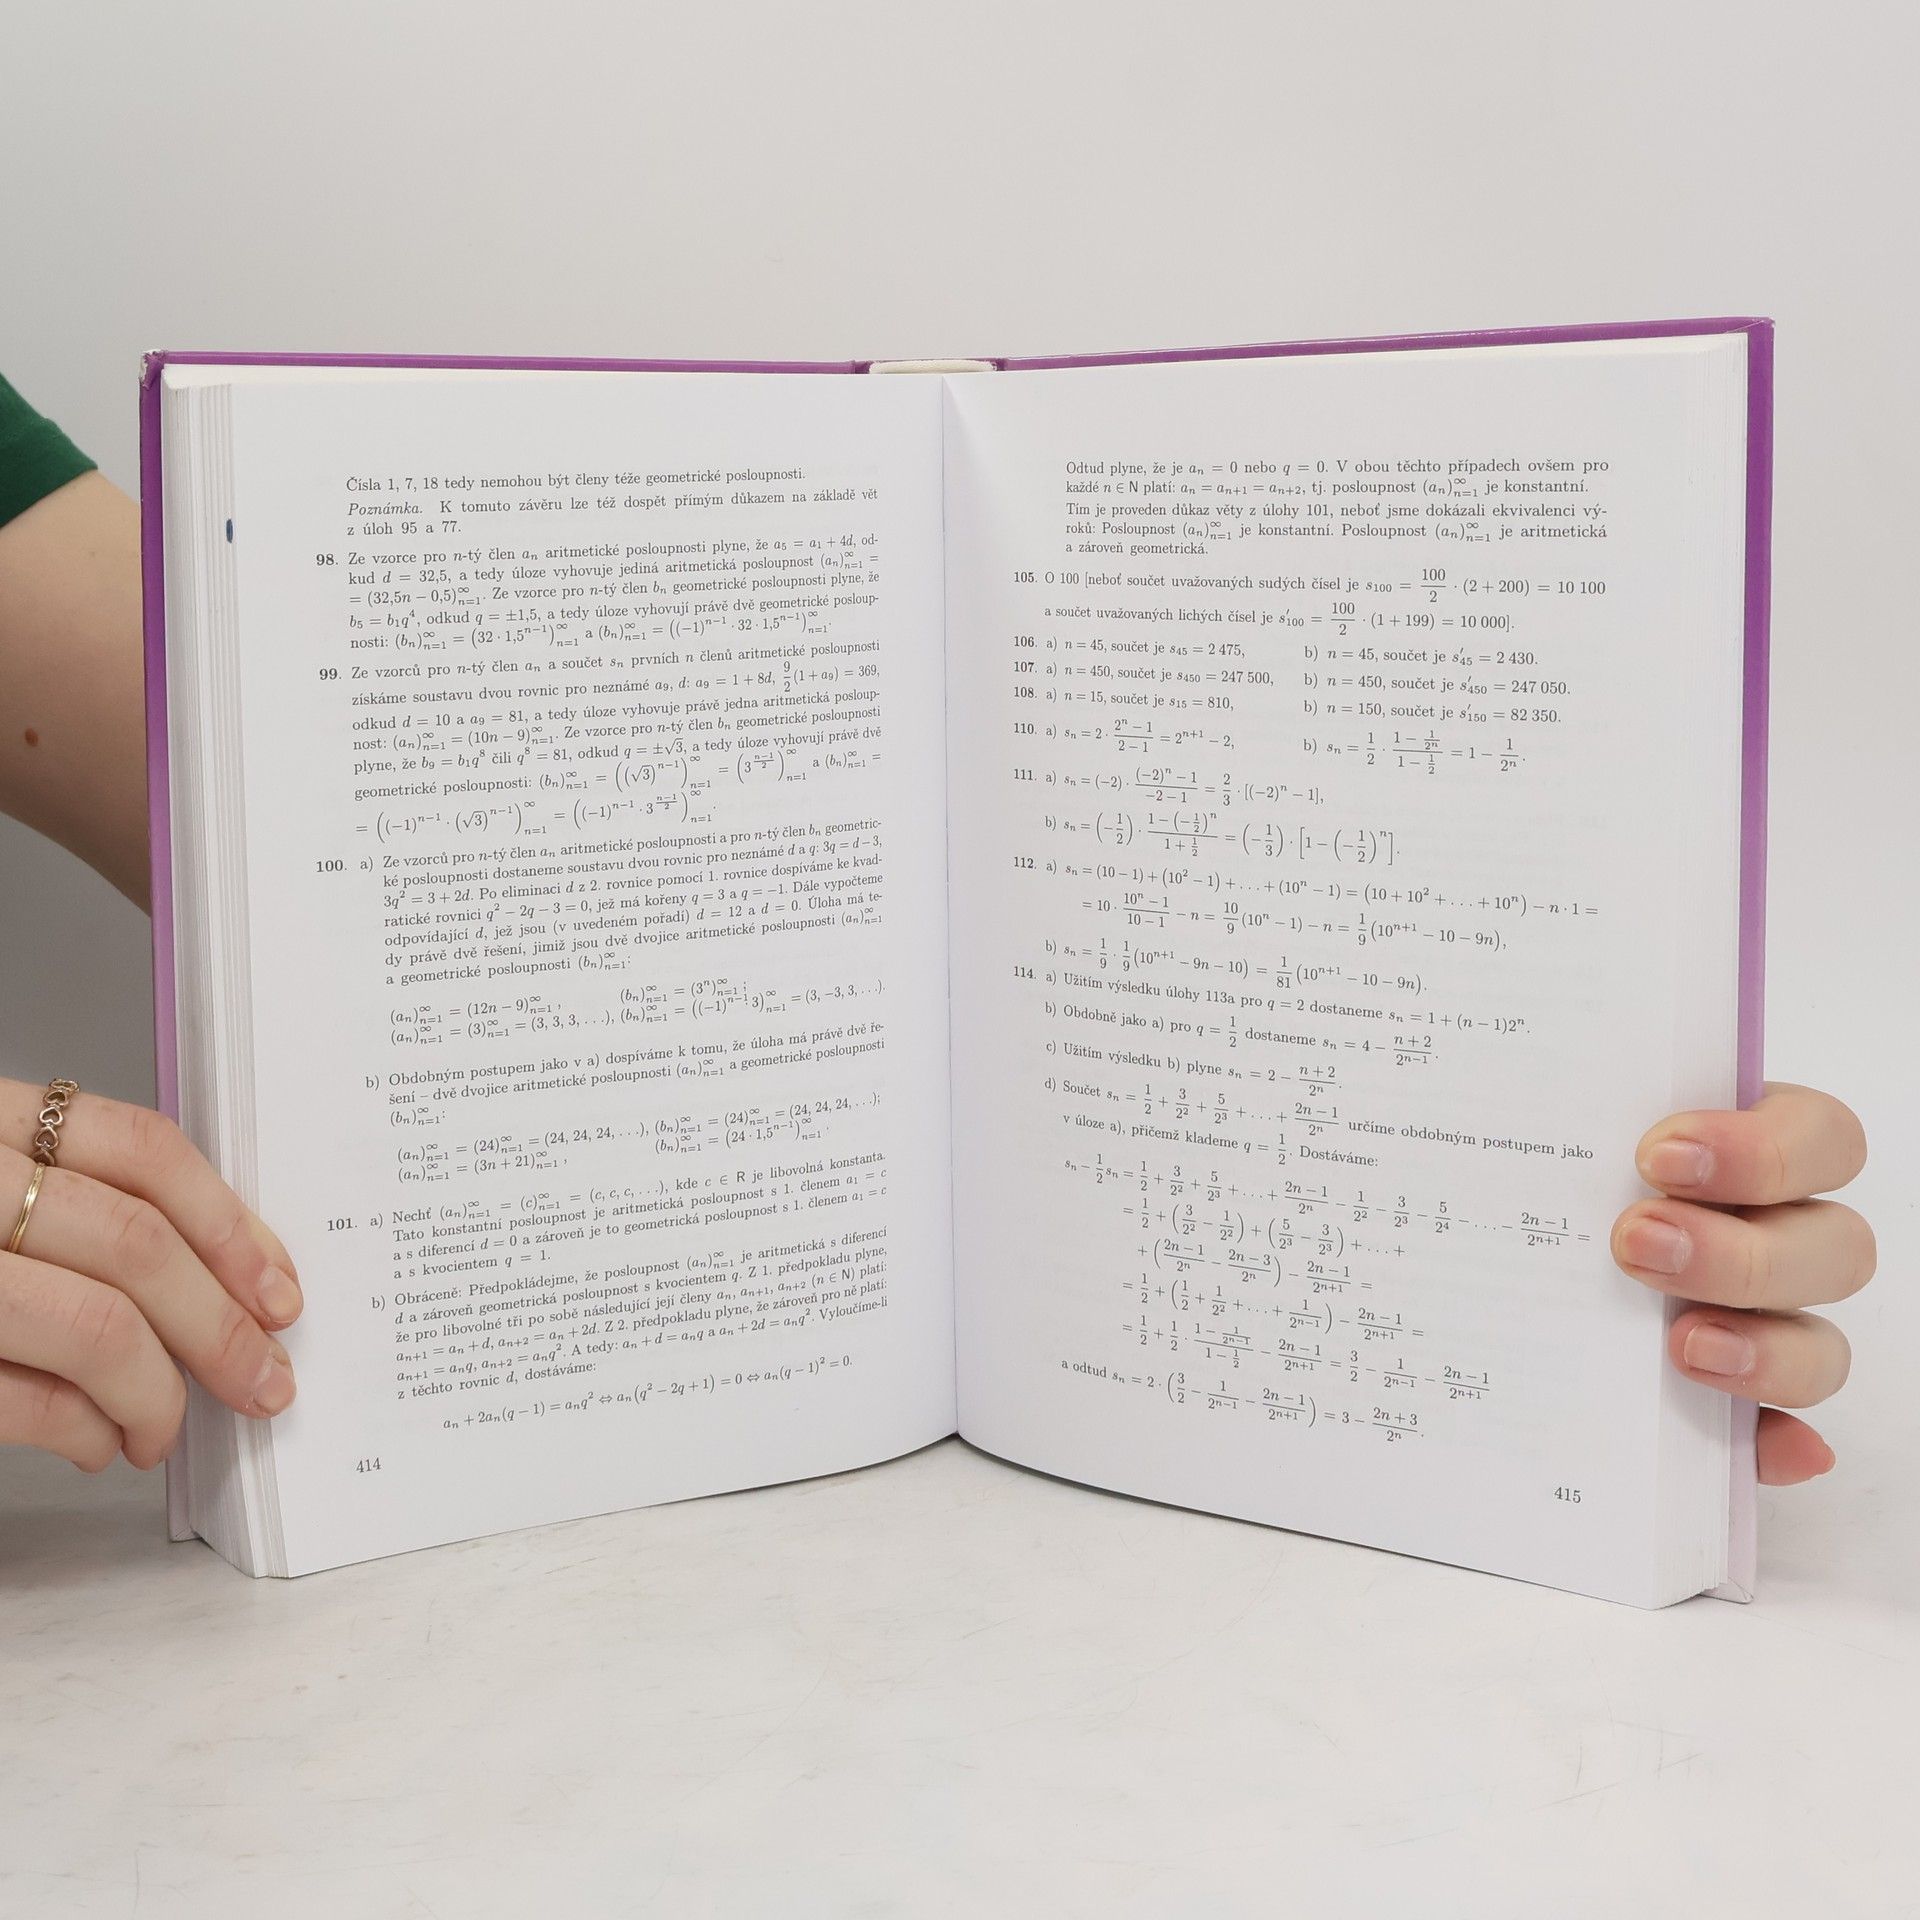 Čísla 1, 7, 18 tedy nemohou být členy téže geometrické posloupnosti.
Poznámka. K tomuto závěru lze též dospět přímým důkazem na základě vět
z úloh 95 a 77.
98. Ze vzorce pro n-tý člen aₙ aritmetické posloupnosti plyne, že a₅ = a₁ + 4d, od-
kud d = 32,5, a tedy úloze vyhovuje jediná aritmetická posloupnost (aₙ)ₙ₌₁^∞ =
= (32,5n − 0,5)ₙ₌₁^∞. Ze vzorce pro n-tý člen bₙ geometrické posloupnosti plyne, že
b₅ = b₁q⁴, odkud q = ±1,5, a tedy úloze vyhovují právě dvě geometrické posloup-
nosti: (bₙ)ₙ₌₁^∞ = (32 · 1,5ⁿ⁻¹)ₙ₌₁^∞ a (bₙ)ₙ₌₁^∞ = ((−1)ⁿ⁻¹ · 32 · 1,5ⁿ⁻¹)ₙ₌₁^∞.
99. Ze vzorců pro n-tý člen aₙ a součet sₙ prvních n členů aritmetické posloupnosti
získáme soustavu dvou rovnic pro neznámé a₉, d: a₉ = 1 + 8d, 9/2 (1 + a₉) = 369,
odkud d = 10 a a₉ = 81, a tedy úloze vyhovuje právě jedna aritmetická posloup-
nost: (aₙ)ₙ₌₁^∞ = (10n − 9)ₙ₌₁^∞. Ze vzorce pro n-tý člen bₙ geometrické posloupnosti
plyne, že b₉ = b₁q⁸ čili q⁸ = 81, odkud q = ±√3, a tedy úloze vyhovují právě dvě
geometrické posloupnosti: (bₙ)ₙ₌₁^∞ = ((√3)ⁿ⁻¹)ₙ₌₁^∞ = (3^((n−1)/2))ₙ₌₁^∞ a (bₙ)ₙ₌₁^∞ =
= ((−1)ⁿ⁻¹ · (√3)ⁿ⁻¹)ₙ₌₁^∞ = ((−1)ⁿ⁻¹ · 3^((n−1)/2))ₙ₌₁^∞.
100. a) Ze vzorců pro n-tý člen aₙ aritmetické posloupnosti a pro n-tý člen bₙ geometric-
ké posloupnosti dostaneme soustavu dvou rovnic pro neznámé d a q: 3q = d − 3,
3q² = 3 + 2d. Po eliminaci d z 2. rovnice pomocí 1. rovnice dospíváme ke kvad-
ratické rovnici q² − 2q − 3 = 0, jež má kořeny q = 3 a q = −1. Dále vypočteme
odpovídající d, jež jsou (v uvedeném pořadí) d = 12 a d = 0. Úloha má te-
dy právě dvě řešení, jimiž jsou dvě dvojice aritmetické posloupnosti (aₙ)ₙ₌₁^∞
a geometrické posloupnosti (bₙ)ₙ₌₁^∞:
(aₙ)ₙ₌₁^∞ = (12n − 9)ₙ₌₁^∞, (bₙ)ₙ₌₁^∞ = (3ⁿ)ₙ₌₁^∞;
(aₙ)ₙ₌₁^∞ = (3)ₙ₌₁^∞ = (3, 3, 3, ...), (bₙ)ₙ₌₁^∞ = ((−1)ⁿ⁻¹ 3)ₙ₌₁^∞ = (3, −3, 3, ...).
b) Obdobným postupem jako v a) dospíváme k tomu, že úloha má právě dvě ře-
šení – dvě dvojice aritmetické posloupnosti (aₙ)ₙ₌₁^∞ a geometrické posloupnosti
(bₙ)ₙ₌₁^∞:
(aₙ)ₙ₌₁^∞ = (24)ₙ₌₁^∞ = (24, 24, 24, ...), (bₙ)ₙ₌₁^∞ = (24)ₙ₌₁^∞ = (24, 24, 24, ...);
(aₙ)ₙ₌₁^∞ = (3n + 21)ₙ₌₁^∞, (bₙ)ₙ₌₁^∞ = (24 · 1,5ⁿ⁻¹)ₙ₌₁^∞.
101. a) Nechť (aₙ)ₙ₌₁^∞ = (c)ₙ₌₁^∞ = (c, c, c, ...), kde c ∈ R je libovolná konstanta.
Tato konstantní posloupnost je aritmetická posloupnost s 1. členem a₁ = c
a s diferencí d = 0 a zároveň je to geometrická posloupnost s 1. členem a₁ = c
a s kvocientem q = 1.
b) Obráceně: Předpokládejme, že posloupnost (aₙ)ₙ₌₁^∞ je aritmetická s diferencí
d a zároveň geometrická posloupnost s kvocientem q. Z 1. předpokladu plyne,
že pro libovolné tři po sobě následující její členy aₙ, aₙ₊₁, aₙ₊₂ (n ∈ N) platí:
aₙ₊₁ = aₙ + d, aₙ₊₂ = aₙ + 2d. Z 2. předpokladu plyne, že zároveň pro ně platí:
aₙ₊₁ = aₙq, aₙ₊₂ = aₙq². A tedy: aₙ + d = aₙq a aₙ + 2d = aₙq². Vyloučíme-li
z těchto rovnic d, dostáváme:
aₙ + 2aₙ(q − 1) = aₙq² ⇔ aₙ(q² − 2q + 1) = 0 ⇔ aₙ(q − 1)² = 0.
414
Odtud plyne, že je aₙ = 0 nebo q = 0. V obou těchto případech ovšem pro
každé n ∈ N platí: aₙ = aₙ₊₁ = aₙ₊₂, tj. posloupnost (aₙ)ₙ₌₁^∞ je konstantní.
Tím je proveden důkaz věty z úlohy 101, neboť jsme dokázali ekvivalenci vý-
roků: Posloupnost (aₙ)ₙ₌₁^∞ je konstantní. Posloupnost (aₙ)ₙ₌₁^∞ je aritmetická
a zároveň geometrická.
105. O 100 [neboť součet uvažovaných sudých čísel je s₁₀₀ = 100/2 · (2 + 200) = 10 100
a součet uvažovaných lichých čísel je s′₁₀₀ = 100/2 · (1 + 199) = 10 000].
106. a) n = 45, součet je s₄₅ = 2 475, b) n = 45, součet je s′₄₅ = 2 430.
107. a) n = 450, součet je s₄₅₀ = 247 500, b) n = 450, součet je s′₄₅₀ = 247 050.
108. a) n = 15, součet je s₁₅ = 810, b) n = 150, součet je s′₁₅₀ = 82 350.
110. a) sₙ = 2 · (2ⁿ − 1)/(2 − 1) = 2ⁿ⁺¹ − 2, b) sₙ = 1/2 · (1 − 1/2ⁿ)/(1 − 1/2) = 1 − 1/2ⁿ.
111. a) sₙ = (−2) · ((−2)ⁿ − 1)/(−2 − 1) = 2/3 · [(−2)ⁿ − 1],
b) sₙ = (−1/2) · (1 − (−1/2)ⁿ)/(1 + 1/2) = (−1/3) · [1 − (−1/2)ⁿ].
112. a) sₙ = (10 − 1) + (10² − 1) + ... + (10ⁿ − 1) = (10 + 10² + ... + 10ⁿ) − n · 1 =
= 10 · (10ⁿ − 1)/(10 − 1) − n = 10/9 (10ⁿ − 1) − n = 1/9 (10ⁿ⁺¹ − 10 − 9n),
b) sₙ = 1/9 · 1/9 (10ⁿ⁺¹ − 9n − 10) = 1/81 (10ⁿ⁺¹ − 10 − 9n).
114. a) Užitím výsledku úlohy 113a pro q = 2 dostaneme sₙ = 1 + (n − 1)2ⁿ.
b) Obdobně jako a) pro q = 1/2 dostaneme sₙ = 4 − (n + 2)/2ⁿ⁻¹.
c) Užitím výsledku b) plyne sₙ = 2 − (n + 2)/2ⁿ.
d) Součet sₙ = 1/2 + 3/2² + 5/2³ + ... + (2n − 1)/2ⁿ určíme obdobným postupem jako
v úloze a), přičemž klademe q = 1/2. Dostáváme:
sₙ − 1/2 sₙ = 1/2 + 3/2² + 5/2³ + ... + (2n − 1)/2ⁿ − 1/2² − 3/2³ − 5/2⁴ − ... − (2n − 1)/2ⁿ⁺¹ =
= 1/2 + (3/2² − 1/2²) + (5/2³ − 3/2³) + ... +
+ ((2n − 1)/2ⁿ − (2n − 3)/2ⁿ) − (2n − 1)/2ⁿ⁺¹ =
= 1/2 + (1/2 + 1/2² + ... + 1/2ⁿ⁻¹) − (2n − 1)/2ⁿ⁺¹ =
= 1/2 + 1/2 · (1 − 1/2ⁿ⁻¹)/(1 − 1/2) − (2n − 1)/2ⁿ⁺¹ = 3/2 − 1/2ⁿ⁻¹ − (2n − 1)/2ⁿ⁺¹
a odtud sₙ = 2 · (3/2 − 1/2ⁿ⁻¹ − (2n − 1)/2ⁿ⁺¹) = 3 − (2n + 3)/2ⁿ.
415